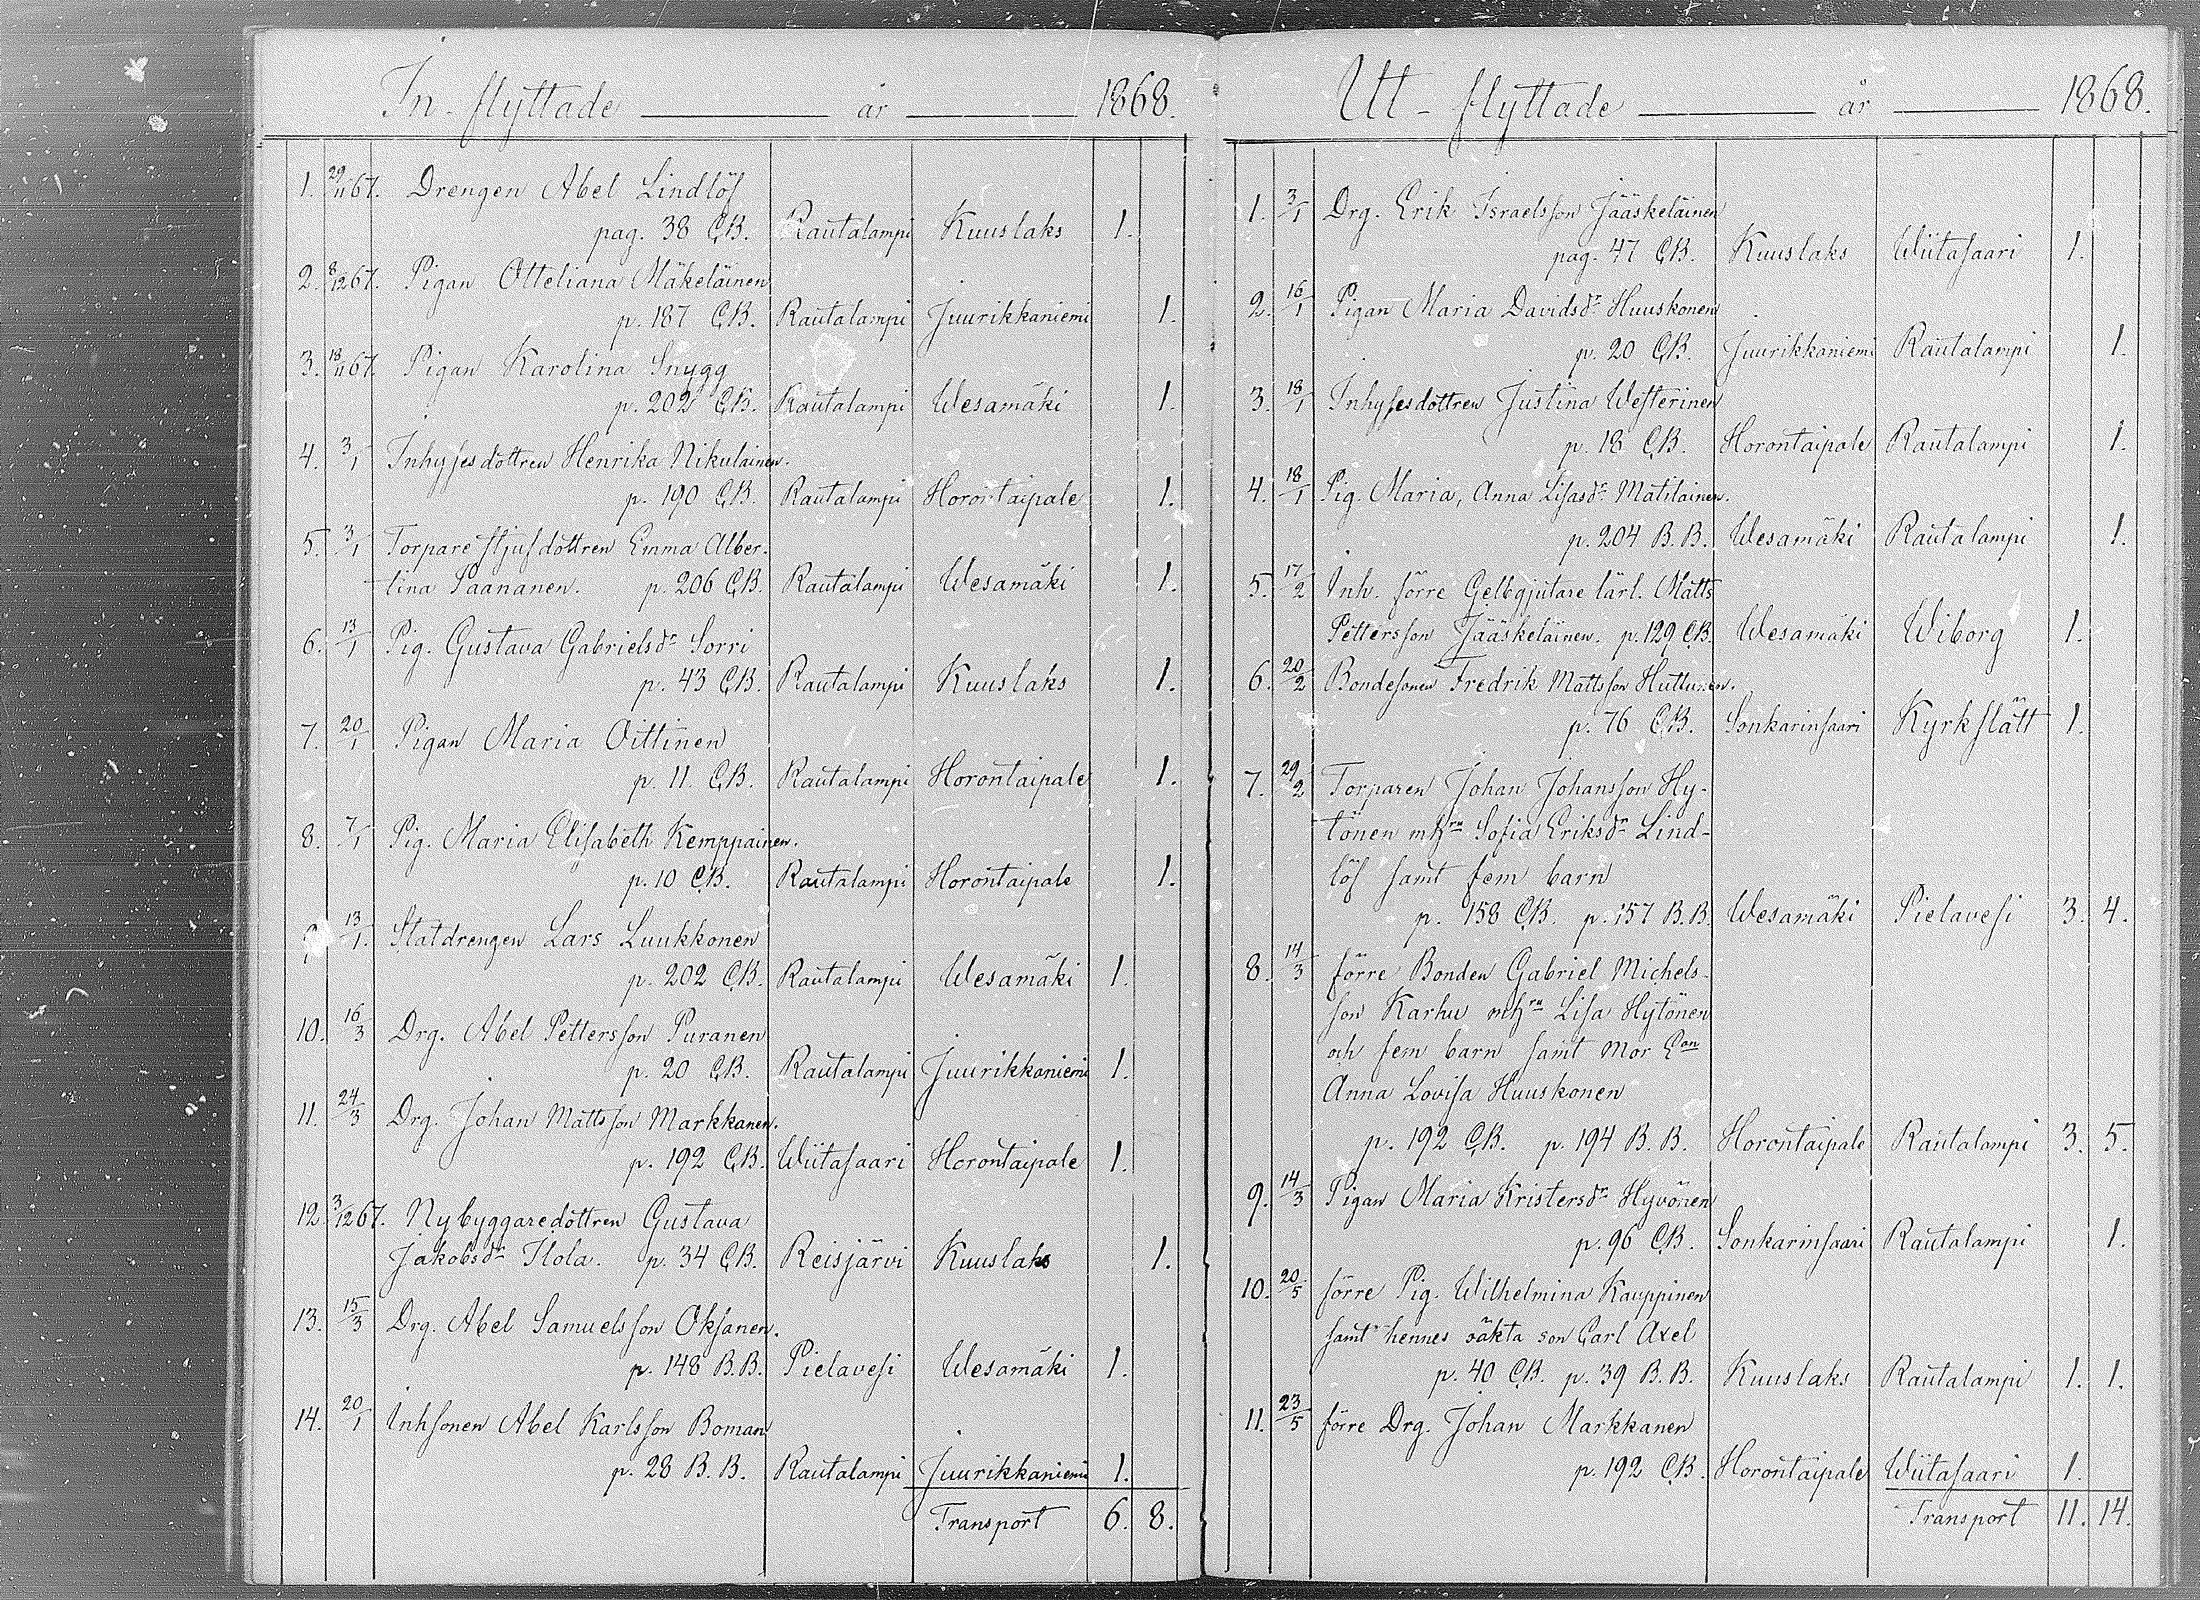 In-flyttade år 1868.
1. 29/11 67. Drengen Abel Lindlöf
pag. 38 C.B. Rautalampi Kuuslaks 1.
2. 8/12 67. Pigan Otteliana Mäkeläinen
p. 187 C.B. Rautalampi Juurikkaniemi 1.
3. 18/11 67. Pigan Karolina Snygg
p. 202 C.B. Rautalampi Wesamäki 1.
4. 3/1 Inhysesdottren Henrika Nikulainen.
p. 190 C.B. Rautalampi Horontaipale 1.
5. 3/1 Torpare stjufdottren Emma Alber-
tina Paananen. p. 206 C.B. Rautalampi Wesamäki 1.
6. 13/1 Pig. Gustava Gabrielsdr Sorri
p. 43 C.B. Rautalampi Kuuslaks 1.
7. 20/1 Pigan Maria Oittinen
p. 11. C.B. Rautalampi Horontaipale 1.
8. 7/1 Pig. Maria Elisabeth Kemppainen.
p. 10 C.B. Rautalampi Horontaipale 1.
13/1. Statdrengen Lars Luukkonen
p. 202 C.B. Rautalampi Wesamäki 1.
10. 16/3 Drg. Abel Pettersson Puranen
p. 20 C.B. Rautalampi Juurikkaniemi 1.
11. 24/3 Drg. Johan Mattsson Markkanen.
p. 192 C.B. Wiitasaari Horontaipale 1.
12. 3/12 67. Nybyggaredottren Gustava
Jakobsdr Ilola. p. 34 C.B. Reisjärvi Kuuslaks 1.
13. 15/3 Drg. Abel Samuelsson Oksanen.
p. 148 B.B. Pielavesi Wesamäki 1.
14. 20/1 Inhsonen Abel Karlsson Boman
p. 28 B.B. Rautalampi Juurikkaniemi 1.
Transport 6. 8.
Ut-flyttade år 1868.
1. 3/1 Drg. Erik Israelsson Jääskeläinen
pag. 47 C.B. Kuuslaks Wiitasaari 1.
2. 16/1 Pigan Maria Davidsdr Huuskonen
p. 20 C.B. Juurikkaniemi Rautalampi 1.
3. 18/1 Inhysesdottren Justina Westerinen
p. 18 C.B. Horontaipale Rautalampi 1.
4. 18/1 Pig. Maria, Anna Lisasdr Matilainen.
p. 204 B.B. Wesamäki Rautalampi 1.
5. 17/2 Inh. förre Gelbgjutare lärl. Matts
Pettersson Jääskeläinen. p. 129 C.B. Wesamäki Wiborg 1.
6. 20/2 Bondesonen Fredrik Mattsson Huttunen.
p. 76 C.B. Sonkarinsaari Kyrkslätt 1.
7. 29/2 Torparen Johan Johansson Hy-
tönen mhru Sofia Eriksdr Lind-
löf samt fem barn
p. 158 C.B. p. 157 B.B. Wesamäki Pielavesi 3. 4.
8. 14/3 förre Bonden Gabriel Michels-
son Karhu mhru Lisa Hytönen
och fem barn samt mor Ean
Anna Lovisa Huuskonen
p. 192 C.B. p. 194 B.B. Horontaipale Rautalampi 3. 5.
9. 14/3 Pigan Maria Kristersdr Hyvönen
p. 96 C.B. Sonkarinsaari Rautalampi 1.
10. 20/5 förre Pig. Wilhelmina Kauppinen
samt hennes oäkta son Carl Axel
p. 40 C.B. p. 39 B.B. Kuuslaks Rautalampi 1. 1.
11. 23/5 förre Drg. Johan Markkanen
p. 192 C.B. Horontaipale Wiitasaari 1.
Transport 11. 14.